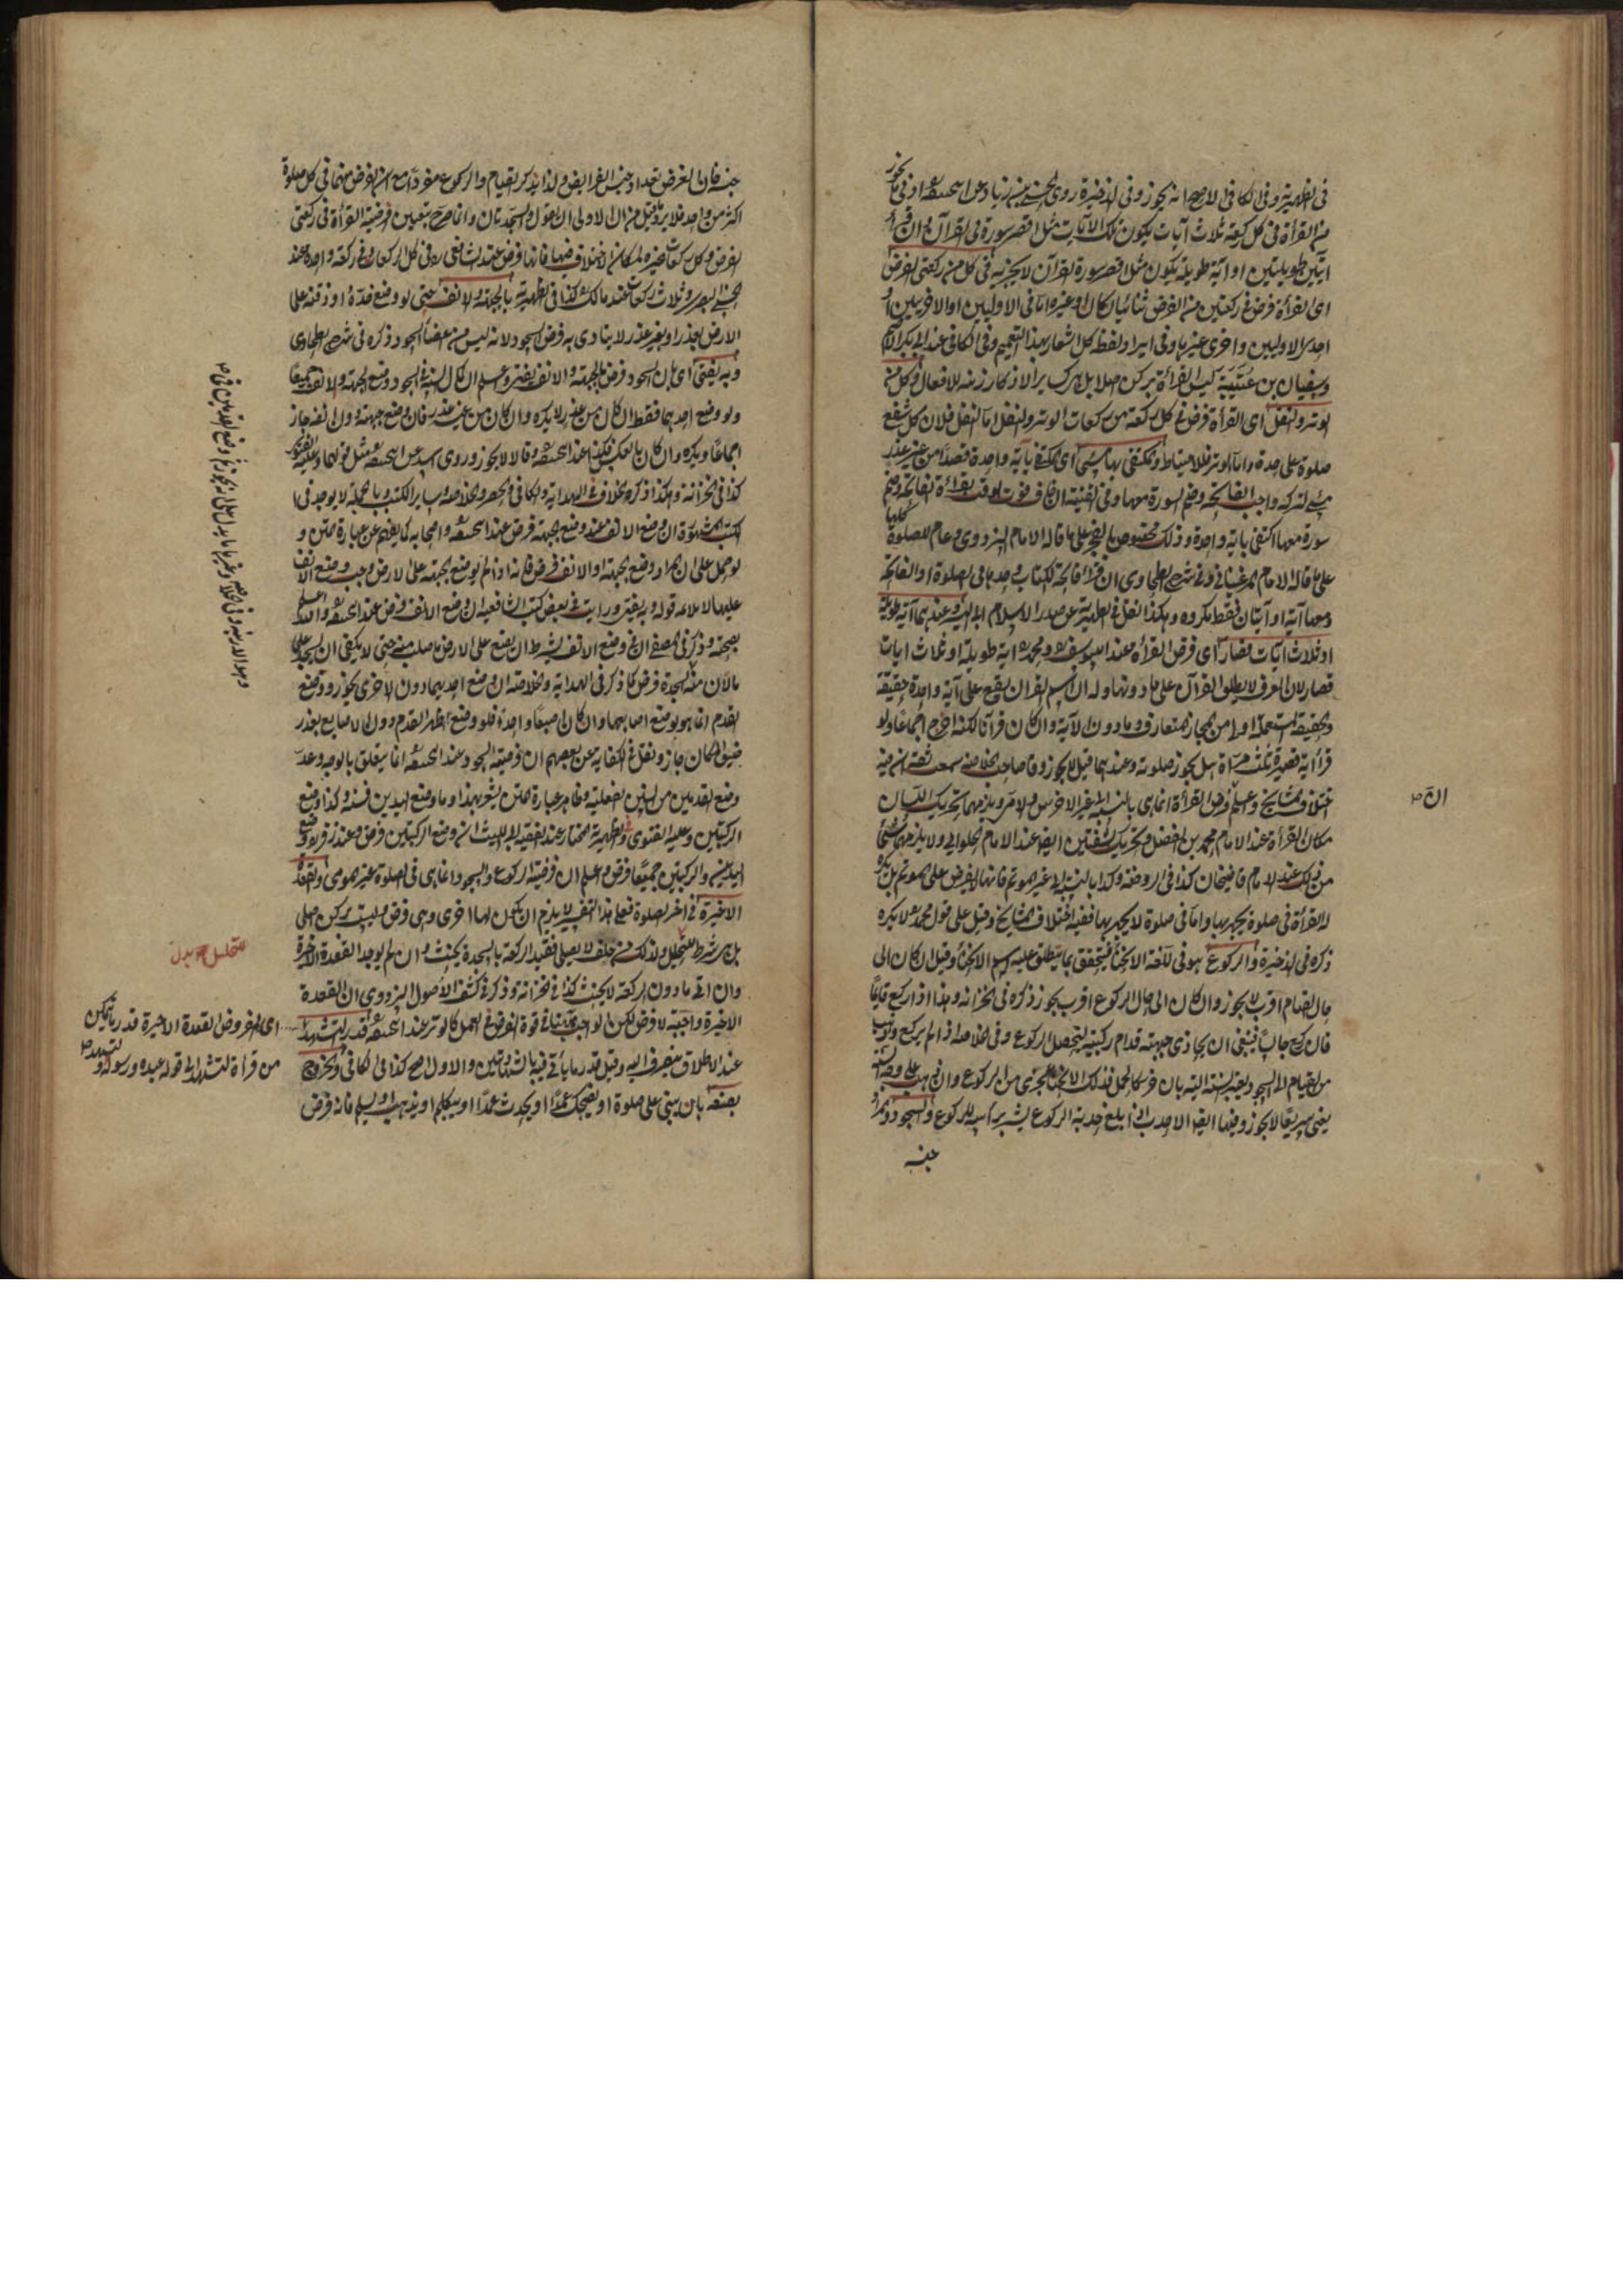 في الظهيرية وفي الكافي الاصح انه يجوز وفي الذخيرة روى الحسن بن زياد عن ابيحنيفة ادنى ما يجوز
من القرأة في كل ركعة ثلاث آيات يكون تلك الآيات مثل اقصر سورة في القرآن وان قرأ
آيتين طويلتين او آية طويلة يكون مثل اقصر سورة القرآن لا يجزيه في كل من ركعتي الفرض
اى القرأة فرض في ركعتين من الفرض ثنائيا كان او غيره اما في الاوليين او الاخريين او
احدى الاوليين واخرى غيرها وفي ايراد لفظ كل اشعار بهذا التعميم وفي الكافي عند ابي بكر الاصم
وسفيان بن عيينة ليس القرأة بركن اصلا بل كسائر الاذكار زينة للافعال وكل من
الوتر والنفل اى القرأة فرض في كل ركعة من ركعات الوتر والنفل اما النفل فلان كل شفع
صلوة على حدة واما الوتر فللاحتياط والمكتفى بها مسئ اى المكتفي بآية واحدة قصدا من غير عذر
مسئ لتركه واجب الفاتحة وضم السورة معها وفي القنية ان خاف فوت الوقت بقراءة الفاتحة وضم
سورة معها اكتفى بآية واحدة وذلك مخصوص بالفجر على ما قاله الامام البزدوي وعام للصلوة كلها
على ما قاله الامام المرغيناني وفي شرح الطحاوي ان قراءة فاتحة الكتاب وحدها في الصلوة او الفاتحة
ومعها آية او آيتان فقط مكروه وهكذا نقل في الظهيرية عن صدر الاسلام ابي اليسر وعندهما آية طويلة
او ثلاث آيات قصار اى فرض القرأة عند ابي يوسف ومحمد آية طويلة او ثلاث آيات
قصار لان العرف لا يطلق القرآن على ما دونها وله ان اسم القرآن يقع على آية واحدة حقيقة
والحقيقة المستعملة اولى من المجاز المتعارف وما دون الآية وان كان قرآنا لكنه اخرج اجماعا ولو
قرأ آية قصيرة ثلث مرات هل يجوز صلوته وعندهما قيل لا يجوز وقال صاحب الخلاصة سمعت ثقة انه فيه
اختلاف المشايخ واعلم ان فرض القرأة انما هي بالنسبة الى غير الاخرس والامي ويلزمهما تحريك اللسان
ان صح
مكان القرأة عند الامام محمد بن الفضل وتحريك الشفتين ايضا عند الامام الحلواني ولا يلزمهما شيء
من ذلك عند الامام قاضيخان كذا في الروضة وكذا بالنسبة الى غير المؤتم فانها لا يفرض على المؤتم بل يكره
له القرأة في صلوة يجهر بها واما في صلوة لا يجهر بها ففيه اختلاف المشايخ وقيل على قول محمد لا يكره
ذكره في الذخيرة والركوع هو في اللغة الانحناء فيتحقق بما يطلق عليه اسم الانحناء وقيل ان كان الى
حال القيام اقرب لا يجوز وان كان الى حال الركوع اقرب يجوز ذكره في الخزانة وهذا اذا ركع قائما
فان ركع جالسا فينبغي ان يحاذي جبهته قدام ركبتيه ليحصل الركوع وفي الخلاصة اذا لم يركع وذهب
من القيام الى السجود بغير السنة بان خر كالجمل فذلك الانحناء يجزي من الركوع وان ذهب على وجه السنة
يعني سريعا لا يجوز وفيها ايضا الاحدب اذا بلغ حدبته الركوع يشير برأسه للركوع والسجود والمراد
جنسه
جنسه فان الغرض تعداد جنس الفرائض ولذا يذكر القيام والركوع مفردا مع ان الفرض منهما في كل صلوة
اكثر من واحد فلا يرد ما قيل من ان الاولى ان يقول والسجدتان وانما صرح بتعيين فرضية القرأة في ركعتي
الفرض وكل ركعات غيره لمكان الاختلاف فيها فانها فرض عند الشافعي ره في كل الركعات وفي ركعة واحدة عند
الحسن البصري وثلاث ركعات عند مالك كذا في الظهيرية بالجبهة والانف حتى لو وضع خده او ذقنه على
الارض بعذر او بغير عذر لا يتادى به فرض السجود لانه ليس من اعضاء السجود ذكره في شرح الطحاوي
وبه يفتى اى بان السجود فرض بالجبهة والانف يفتى واعلم ان كمال السنة في السجود وضع الجبهة والانف جميعا
ولو وضع احدهما فقط ان كان من عذر لا يكره وان كان من غير عذر فان وضع جبهته دون انفه جاز
اجماعا ويكره وان كان بالعكس فكذلك عند ابيحنيفة وقالا لا يجوز وروى اسد عن ابيحنيفة مثل قولهما وعليه الفتوى
كذا في الخزانة وهكذا ذكره الخلاف في الهداية والكافي والحصر والخلاصة وسائر الكتب وبالجملة لا يوجد في
الكتب المشهورة ان وضع الانف عند وضع الجبهة فرض عند ابيحنيفة واصحابه كما يفهم عن عبارة المتن و
لو حمل على ان المراد وضع الجبهة او الانف فرض فانه اذا لم يوضع الجبهة على الارض وجب وضع الانف
عليها لا يلائمه قوله وبه يفتى ورايت في بعض كتب الشافعية ان وضع الانف فرض عند ابيحنيفة والله اعلم
بصحته وذكر في المصفى ان في وضع الانف يشترط ان يضع على الارض ما صلب منه حتى لا يكفي ان يسجد على
مالان منه السجدة فرض كما ذكر في الهداية والخلاصة ان وضع احديهما دون الاخرى يجوز ووضع
القدم انما هو بوضع اصابعها وان كان اصبعا واحدة فلو وضع ظهر القدم دون الاصابع بعذر
ضيق المكان جاز ونقل في الكفاية عن بعضهم ان فرضية السجود عند ابيحنيفة انما يتعلق بالوجه وعد
وضع القدمين من السنن الفعلية وظاهر عبارة المتن يشعر بهذا واما وضع اليدين فسنة وكذا وضع
الركبتين وعليه الفتوى وفي الظهيرية المختار عند الفقيه ابي الليث ان وضع الركبتين فرض وعند زفر وضع
اليدين والركبتين جميعا فرض واعلم ان فرضية الركوع والسجود انما هي في الصلوة غير المومي والقعدة
الاخيرة في آخر الصلوة فعلى هذا التفسير لا يلزم ان يكون لها اخرى وهي فرض وليست بركن اصلي
بل هي شرط للتحليل ولذلك من حلف لا يصلي فقيد الركعة بالسجدة يحنث وان لم يوجد القعدة الاخيرة
وان اتى ما دون الركعة لا يحنث كذا في الخزانة وذكر في كشف الاصول البزدوي ان القعدة
الاخيرة واجبة لا فرض لكن الواجب هنا في قوة الفرض في العمل كالوتر عند ابيحنيفة قدر التشهد
عند الاطلاق ينصرف اليه وقيل قدر ما ياتي فيه بالشهادتين والاول اصح كذا في الكافي والخروج
بصنعه بان يبني على صلوة او يضحك عمدا او يحدث عمدا او يتكلم او يذهب او يسلم فانه فرض
متحلل بدل
اى المفروض القعدة الاخيرة قدر ما يتمكن
من قراءة التشهد الى قوله عبده ورسوله